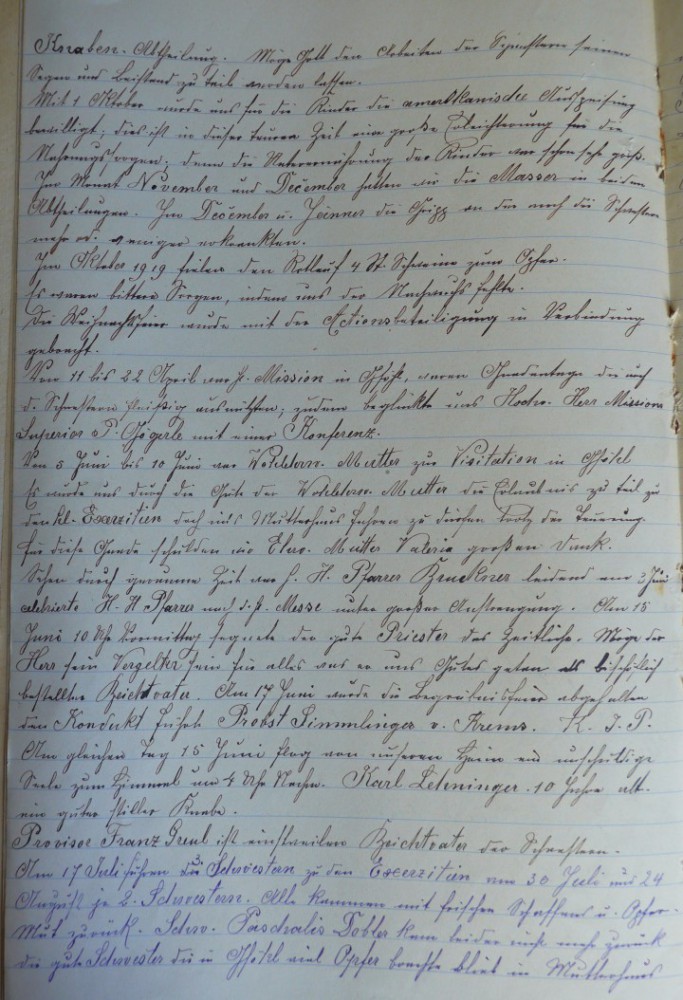 Knaben-Abtheilung. Möge Gott den Arbeiten der Schwestern seinen
Segen und Beistand zu teil werden lassen.
Mit 1 Oktober wurde uns für die Kinder die amerikanische Ausspeisung
bewilligt; dies ist in dieser teuren Zeit eine große Erleichterung für die
Nahrungssorgen; denn die Unterernährung der Kinder war schon sehr groß.
Im Monat November und December hatten wir die Masser in beiden
Abtheilungen. Im December u. Jänner die Gripp an der auch die Schwestern
mehr od. weniger erkrankten.
Im Oktober 1919 fielen den Rotlauf 4 St. Schweine zum Opfer.
Es waren bittere Sorgen, indem uns der Nachwuchs fehlte.
Die Weihnachtsfeier wurde mit der Actionsbeteiligung in Verbindung
gebracht.
Von 11 bis 22 April war h. Mission in Gföhl, waren Gnadentage die auch
d. Schwestern fleißig ausnützten; zudem beglückte uns Hochw. Herr Missions
Superior P. Gögerle mit einer Konferenz.
Von 5 Juni bis 10 Juni war Wohlehrw. Mutter zur Visitation in Gföhl
Es wurde uns durch die Güte der Wohlehrw. Mutter die Erlaubnis zu teil zu
den hl. Exerzitien doch ins Mutterhaus fahren zu dürfen trotz der Teuerung.
Für diese Gnade schulden wir Ehrw. Mutter Valeria großen Dank.
Schon durch geraume Zeit war H. H. Pfarrer Bruckner leidend am 3 Juni
celebrierte H. H Pfarrer noch d. h. Messe unter großer Anstrengung. Am 15
Juni 10 Uhr Vormittag segnete der gute Priester das Zeitliche. Möge der
Herr sein Vergelter sein für alles was er uns Gutes getan als bischöflich
bestellter Beichtvater. Am 17 Juni wurde die Begräbnisfeier abgehalten
den Kondukt führte Probst Simmlinger v. Krems. R. I. P.
Am gleichen Tag 15 Juni flog von unseren Heim eine unschuldige
Seele zum Himmel um 4 Uhr Nachm. Karl Lehninger. 10 Jahre alt.
ein guter stiller Knabe.
Provisor Franz Greul ist einstweilen Beichtvater der Schwestern.
Am 17 Juli fuhren 3 Schwestern zu den Exerzitien am 30 Juli und 24
August je 2. Schwestern. Alle kammen mit frischen Schaffens u. Opfer-
Mut zurück. Schw. Paschalis Dobler kam leider nicht mehr zurück
die gute Schwester die in Gföhl viel Opfer brachte blieb in Mutterhaus